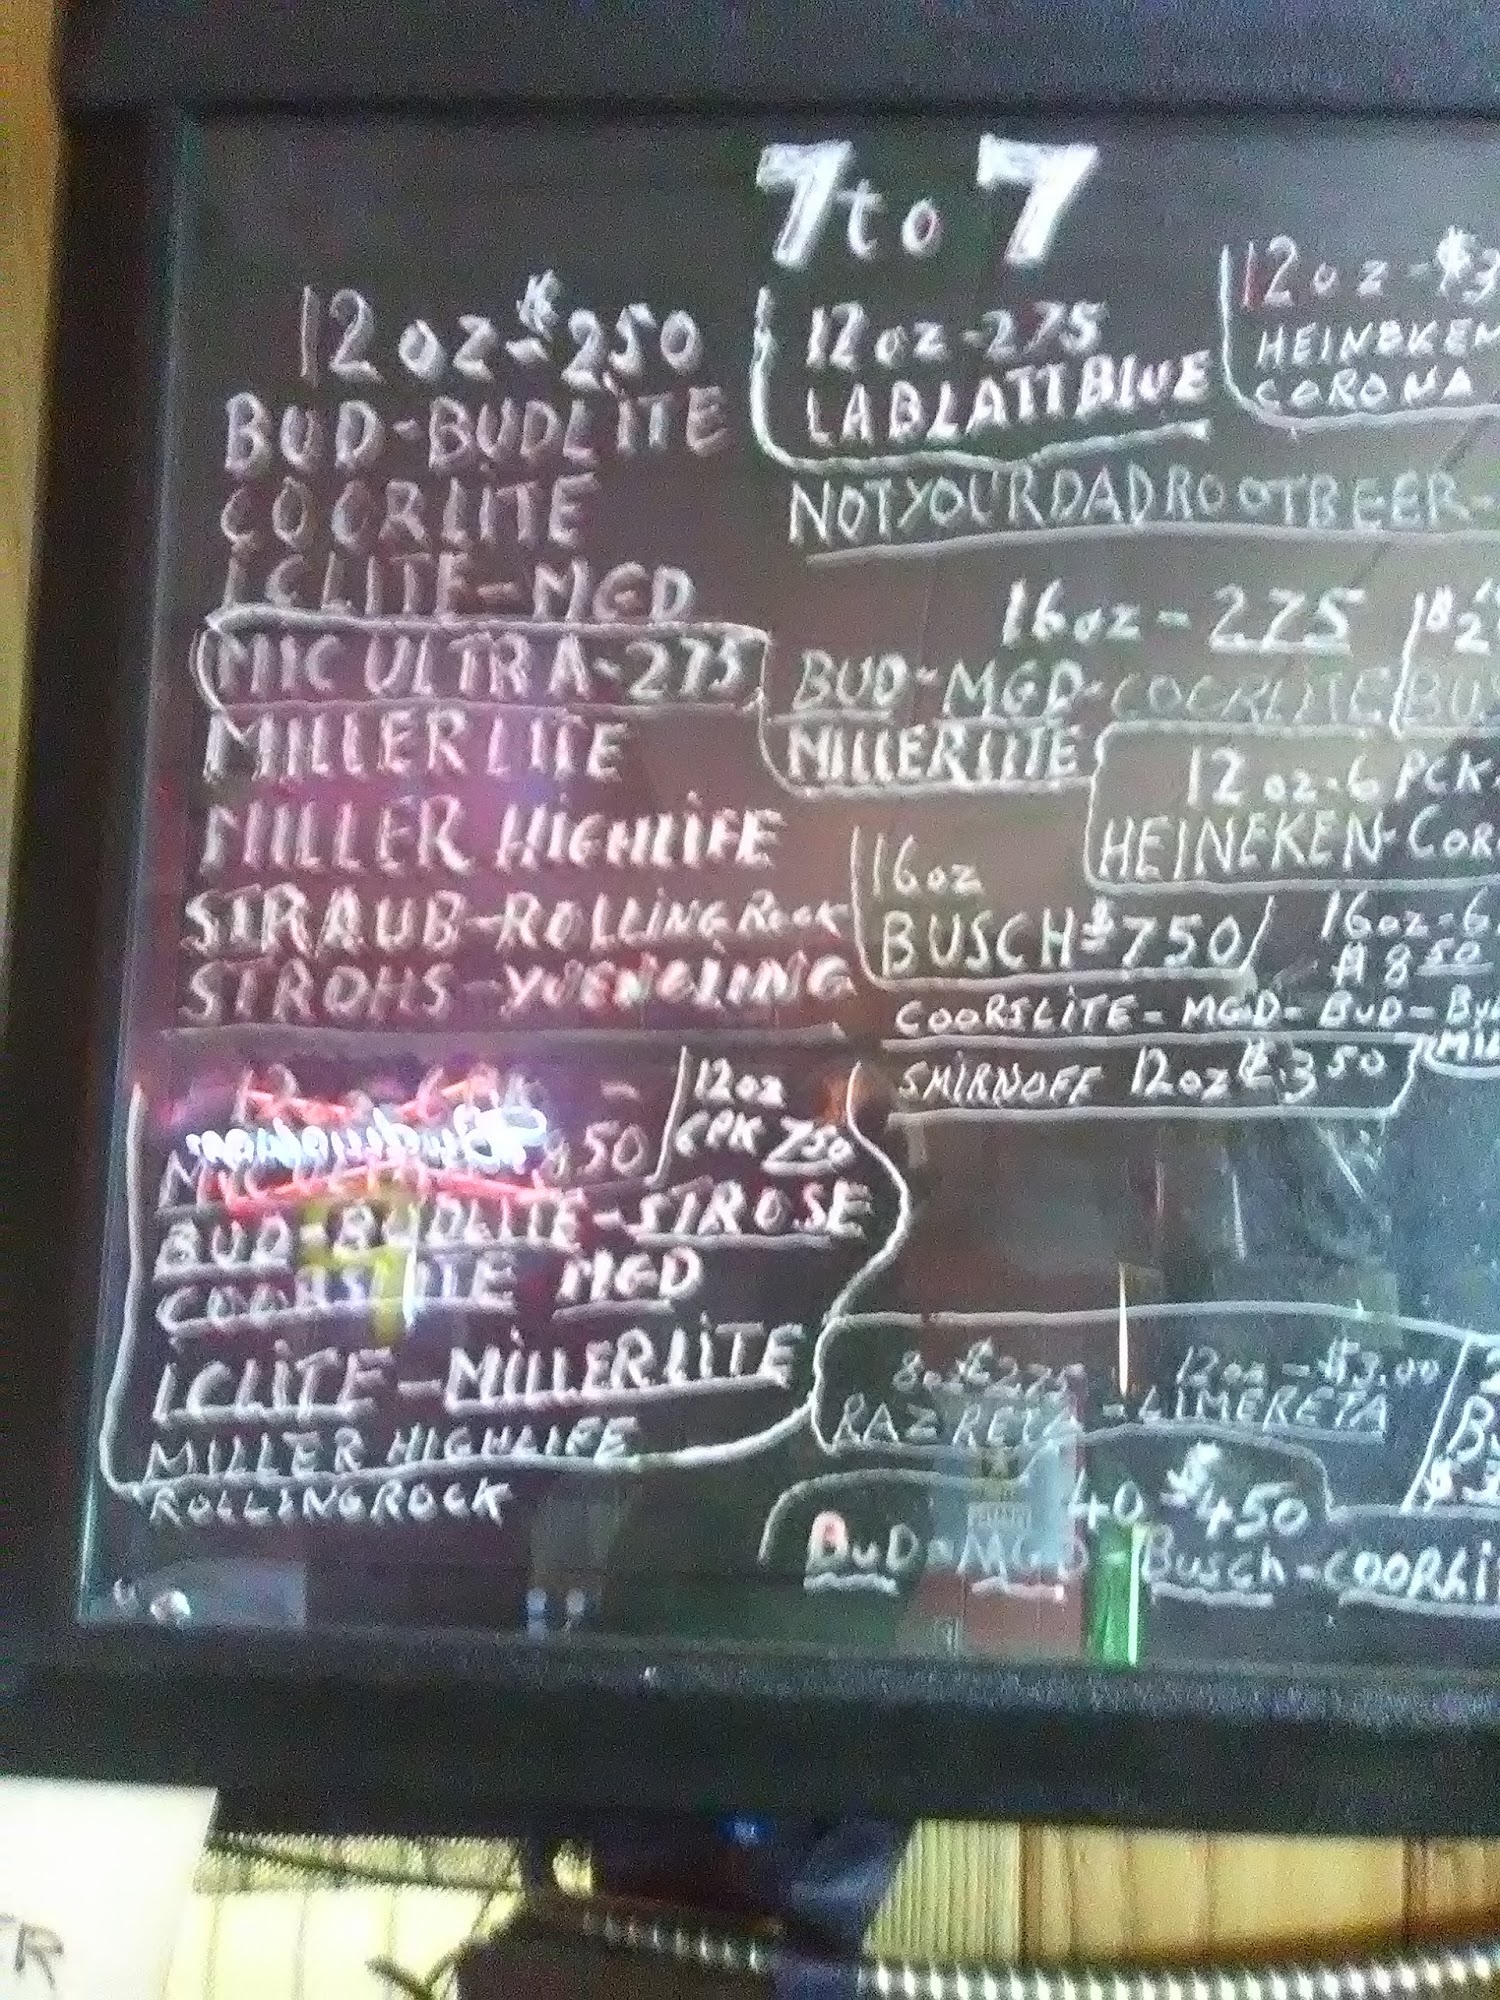 7 to 7
12 oz - $250
BUD - BUDLITE
COORLITE
ICLITE - MGD
MIC ULTRA - 275
MILLERLITE
MILLER HIGHLIFE
STRAUB - ROLLING ROCK
STROHS - YUENGLING
12oz
50
CPK 750
BUD - BUDLITE - STROSE
COORSLITE MGD
ICLITE - MILLERLITE
MILLER HIGHLIFE
ROLLINGROCK
12oz - 275
LABLATT BLUE
12oz - $3
HEINEKEN
CORONA
NOTYOURDADROOTBEER -
16oz - 275
BUD - MGD - COORLITE
MILLERLITE
12 oz - 6 PCK
HEINEKEN - COR
16oz
BUSCH $750
16oz - 6
A 8 50
COORSLITE - MGD - BUD -
SMIRNOFF 12oz $ 3 50
8oz $275 12oz - $3.00
RAZ RETA - LIMERETA
40 $450
BUD - MGD - Busch - COORLI